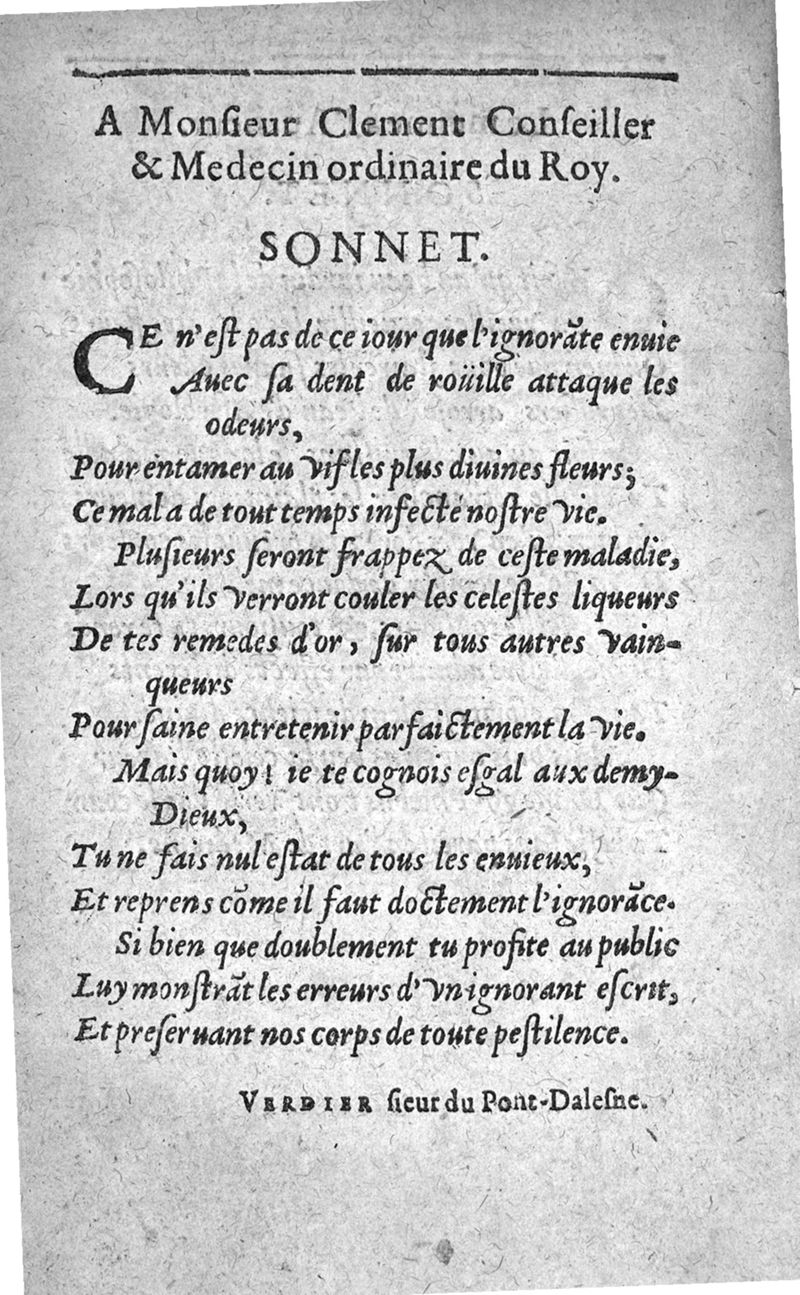 A Monſieur Clement Conſeiller
& Medecin ordinaire du Roy.
SONNET.
CE n'eſt pas de ce iour que l'ignorãte enuie
Auec ſa dent de roüille attaque les
odeurs,
Pour entamer au vif les plus diuines fleurs;
Ce mal a de tout temps infecté noſtre vie.
Pluſieurs ſeront frappez de ceſte maladie,
Lors qu'ils verront couler les celeſtes liqueurs
De tes remedes d'or, ſur tous autres vain-
queurs
Pour ſaine entretenir parfaictement la vie.
Mais quoy! ie te cognois eſgal aux demy-
Dieux,
Tu ne fais nul eſtat de tous les enuieux,
Et reprens cõme il faut doctement l'ignorãce.
Si bien que doublement tu profite au public
Luy monſtrãt les erreurs d'vn ignorant eſcrit,
Et preſeruant nos corps de toute peſtilence.
VERDIER ſieur du Pont-Daleſne.